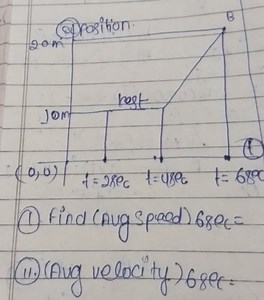 Position.
B
20m
10m
rest
(0,0)
t=2sec t=4sec t=6sec
I Find (Avg speed) 6sec=
II. (Avg velocity) 6sec=